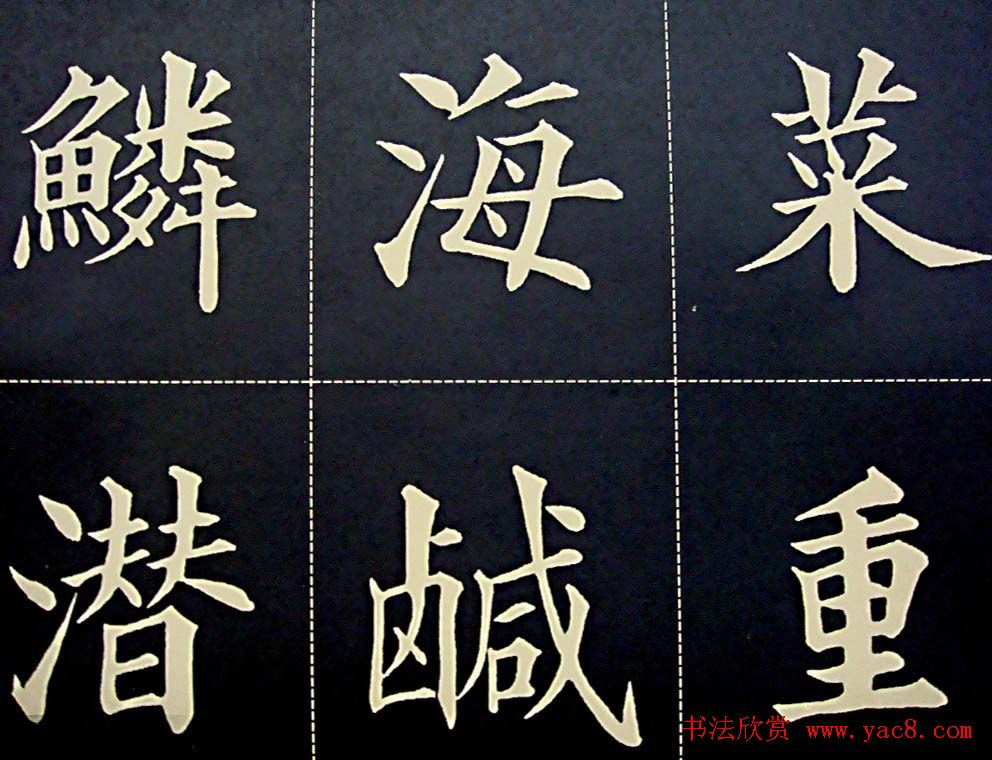 菜重
海鹹
鱗潜
书法欣赏 www.yac8.com